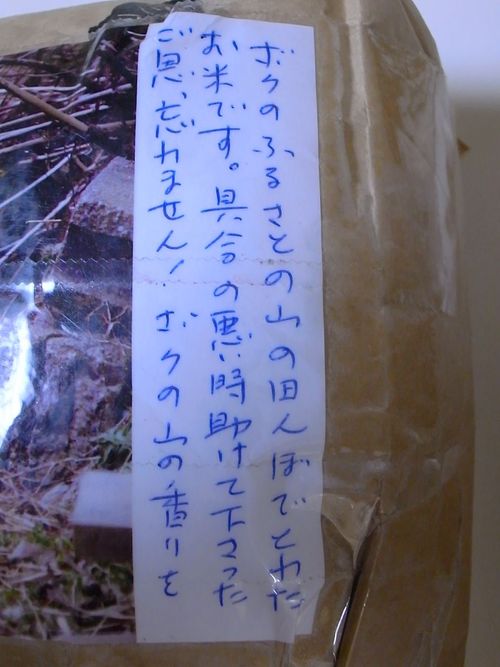 ボクのふるさとの山の田んぼでとれた
お米です。具合の悪い時助けて下さった
ご恩、忘れません！ボクの山の香りを